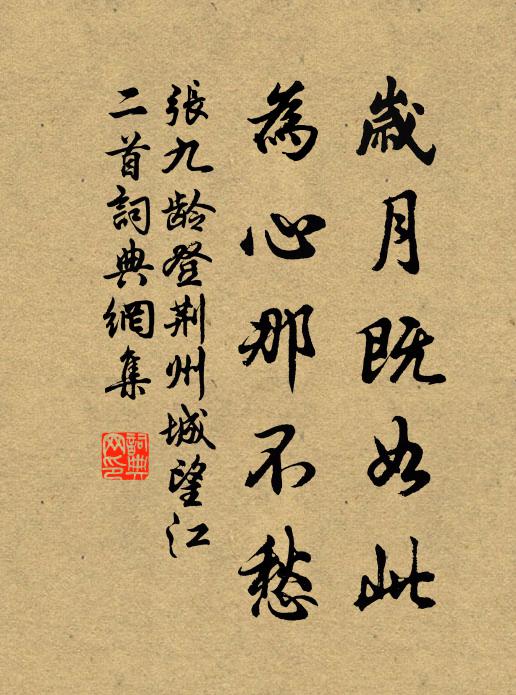 歲月既如此
為心那不愁
張九齡登荆州城望江
二首詞典網集
詞典
网印